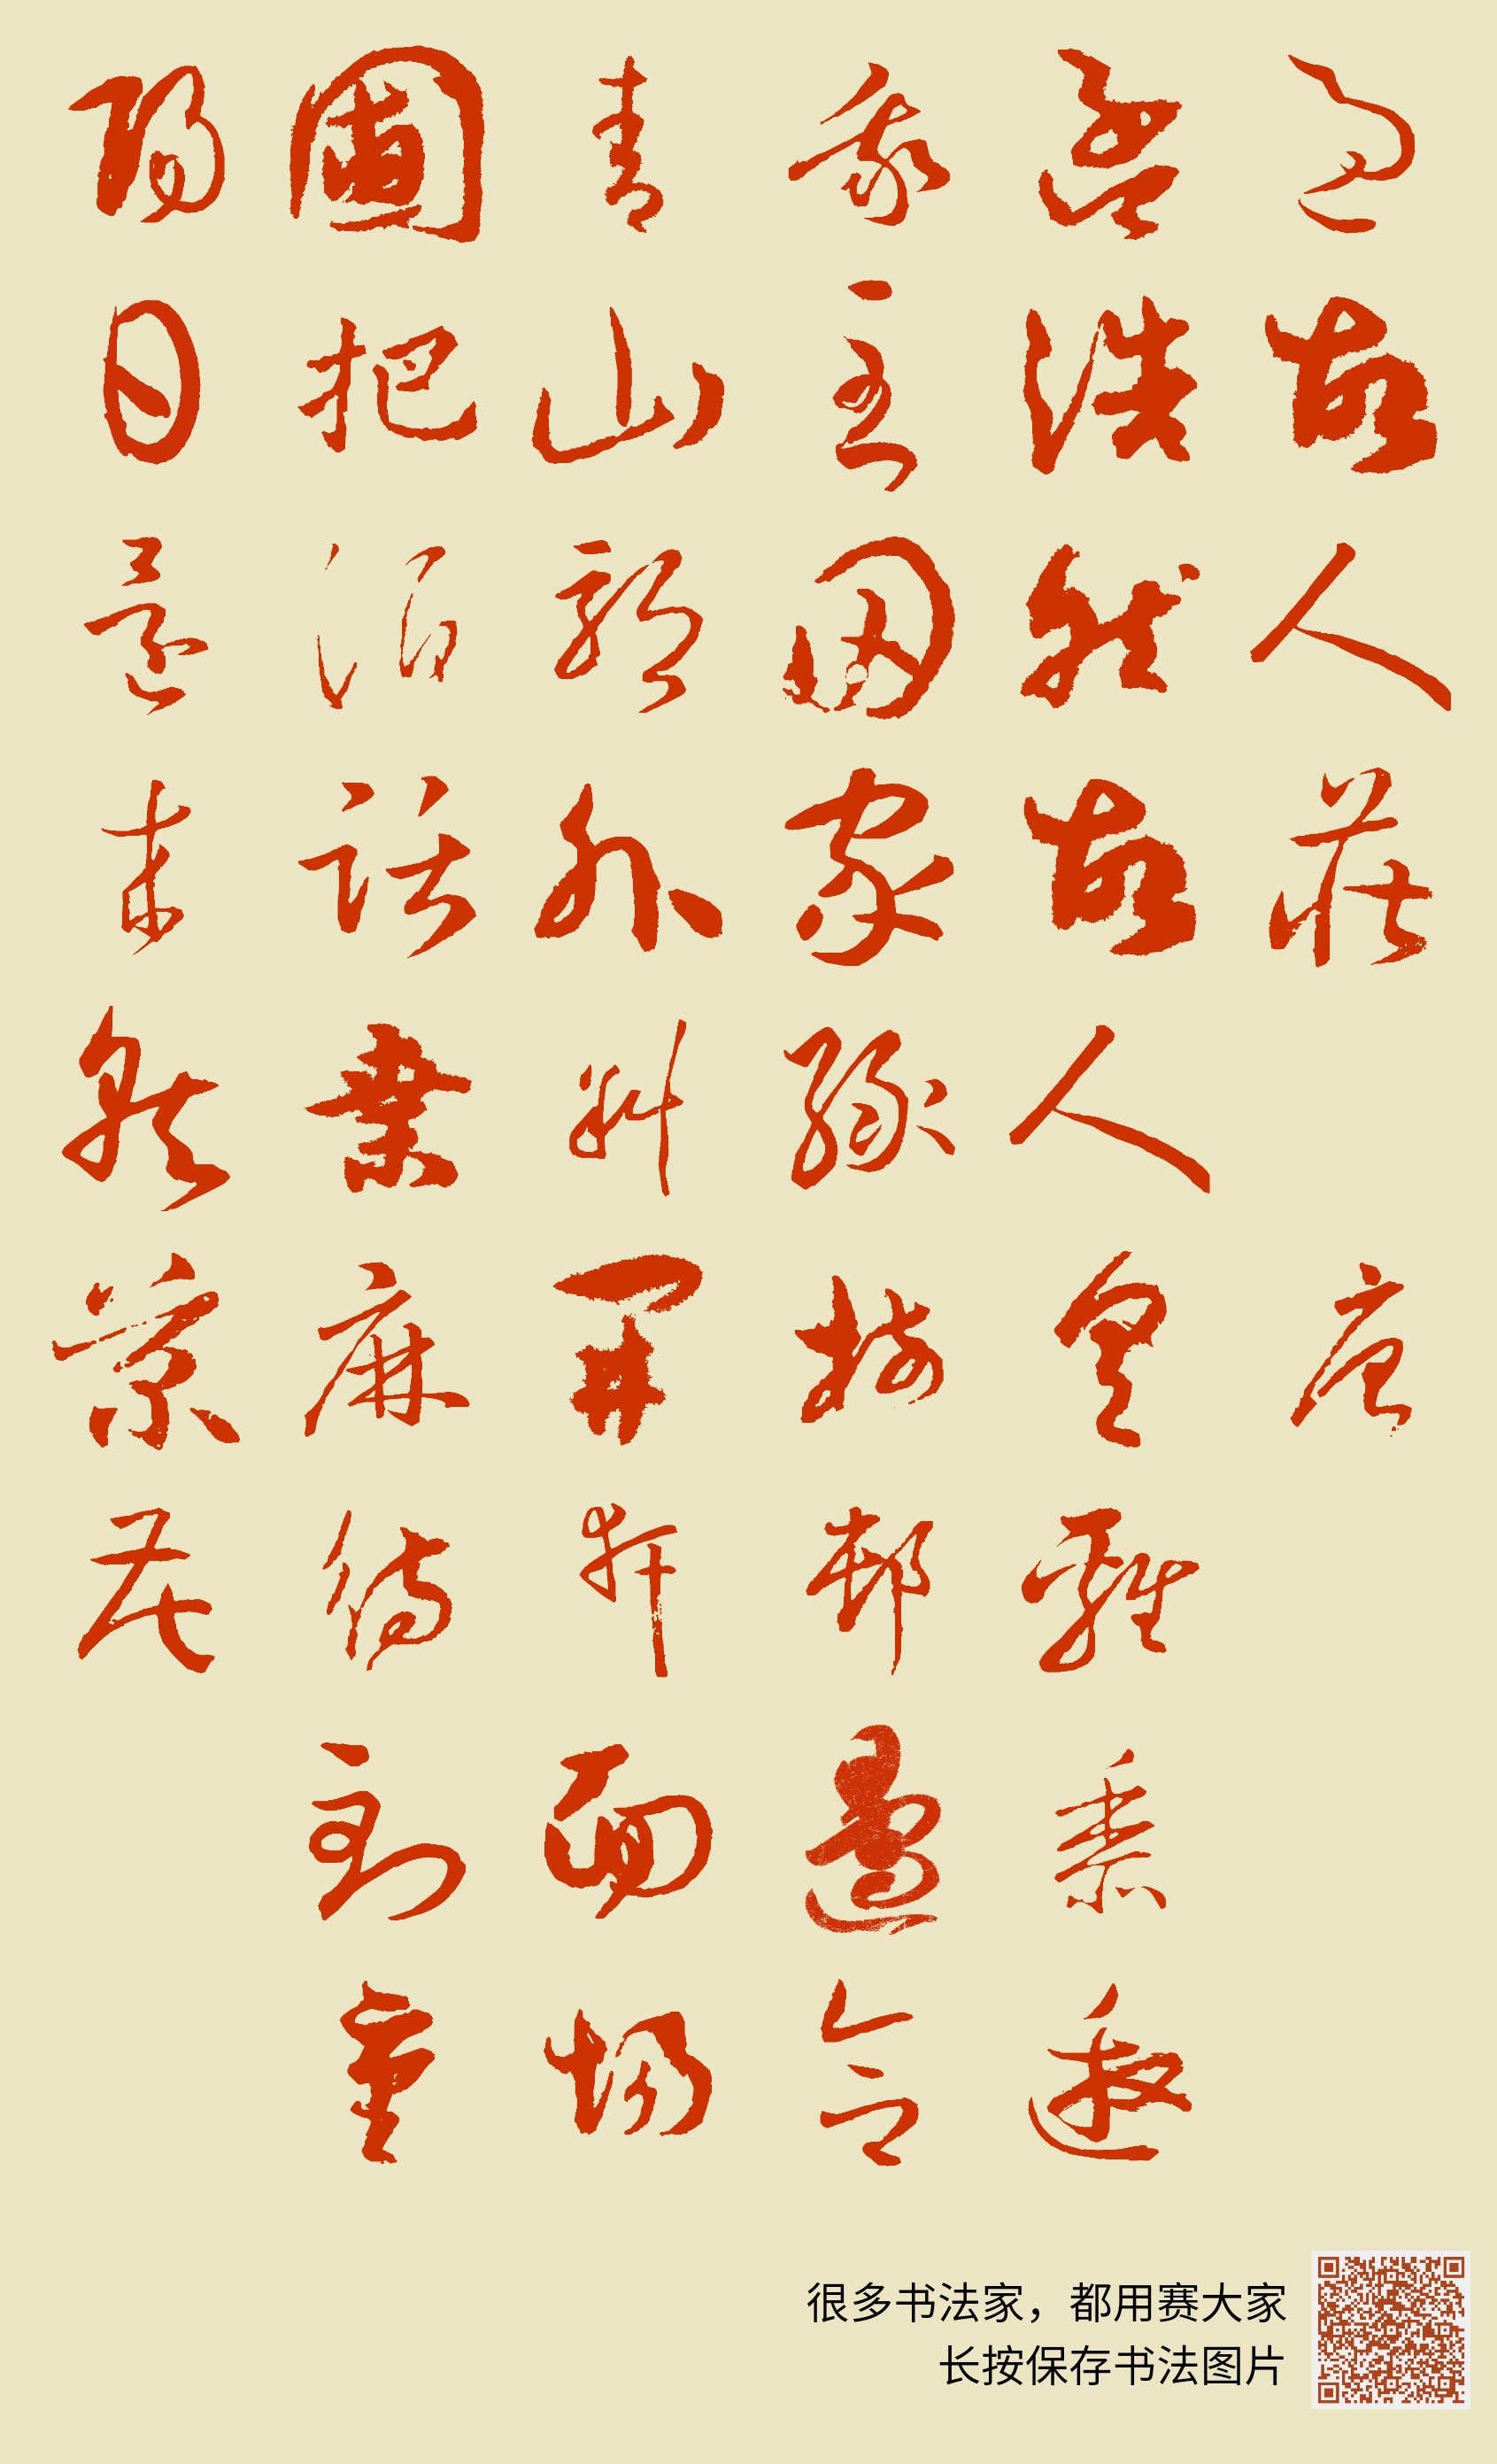 過故人莊 唐
孟浩然故人具雞黍邀
我至田家綠樹邨邊合
青山郭外斜開軒面場
圃把酒話桑麻待到重
陽日還來就菊花
很多书法家，都用赛大家
长按保存书法图片